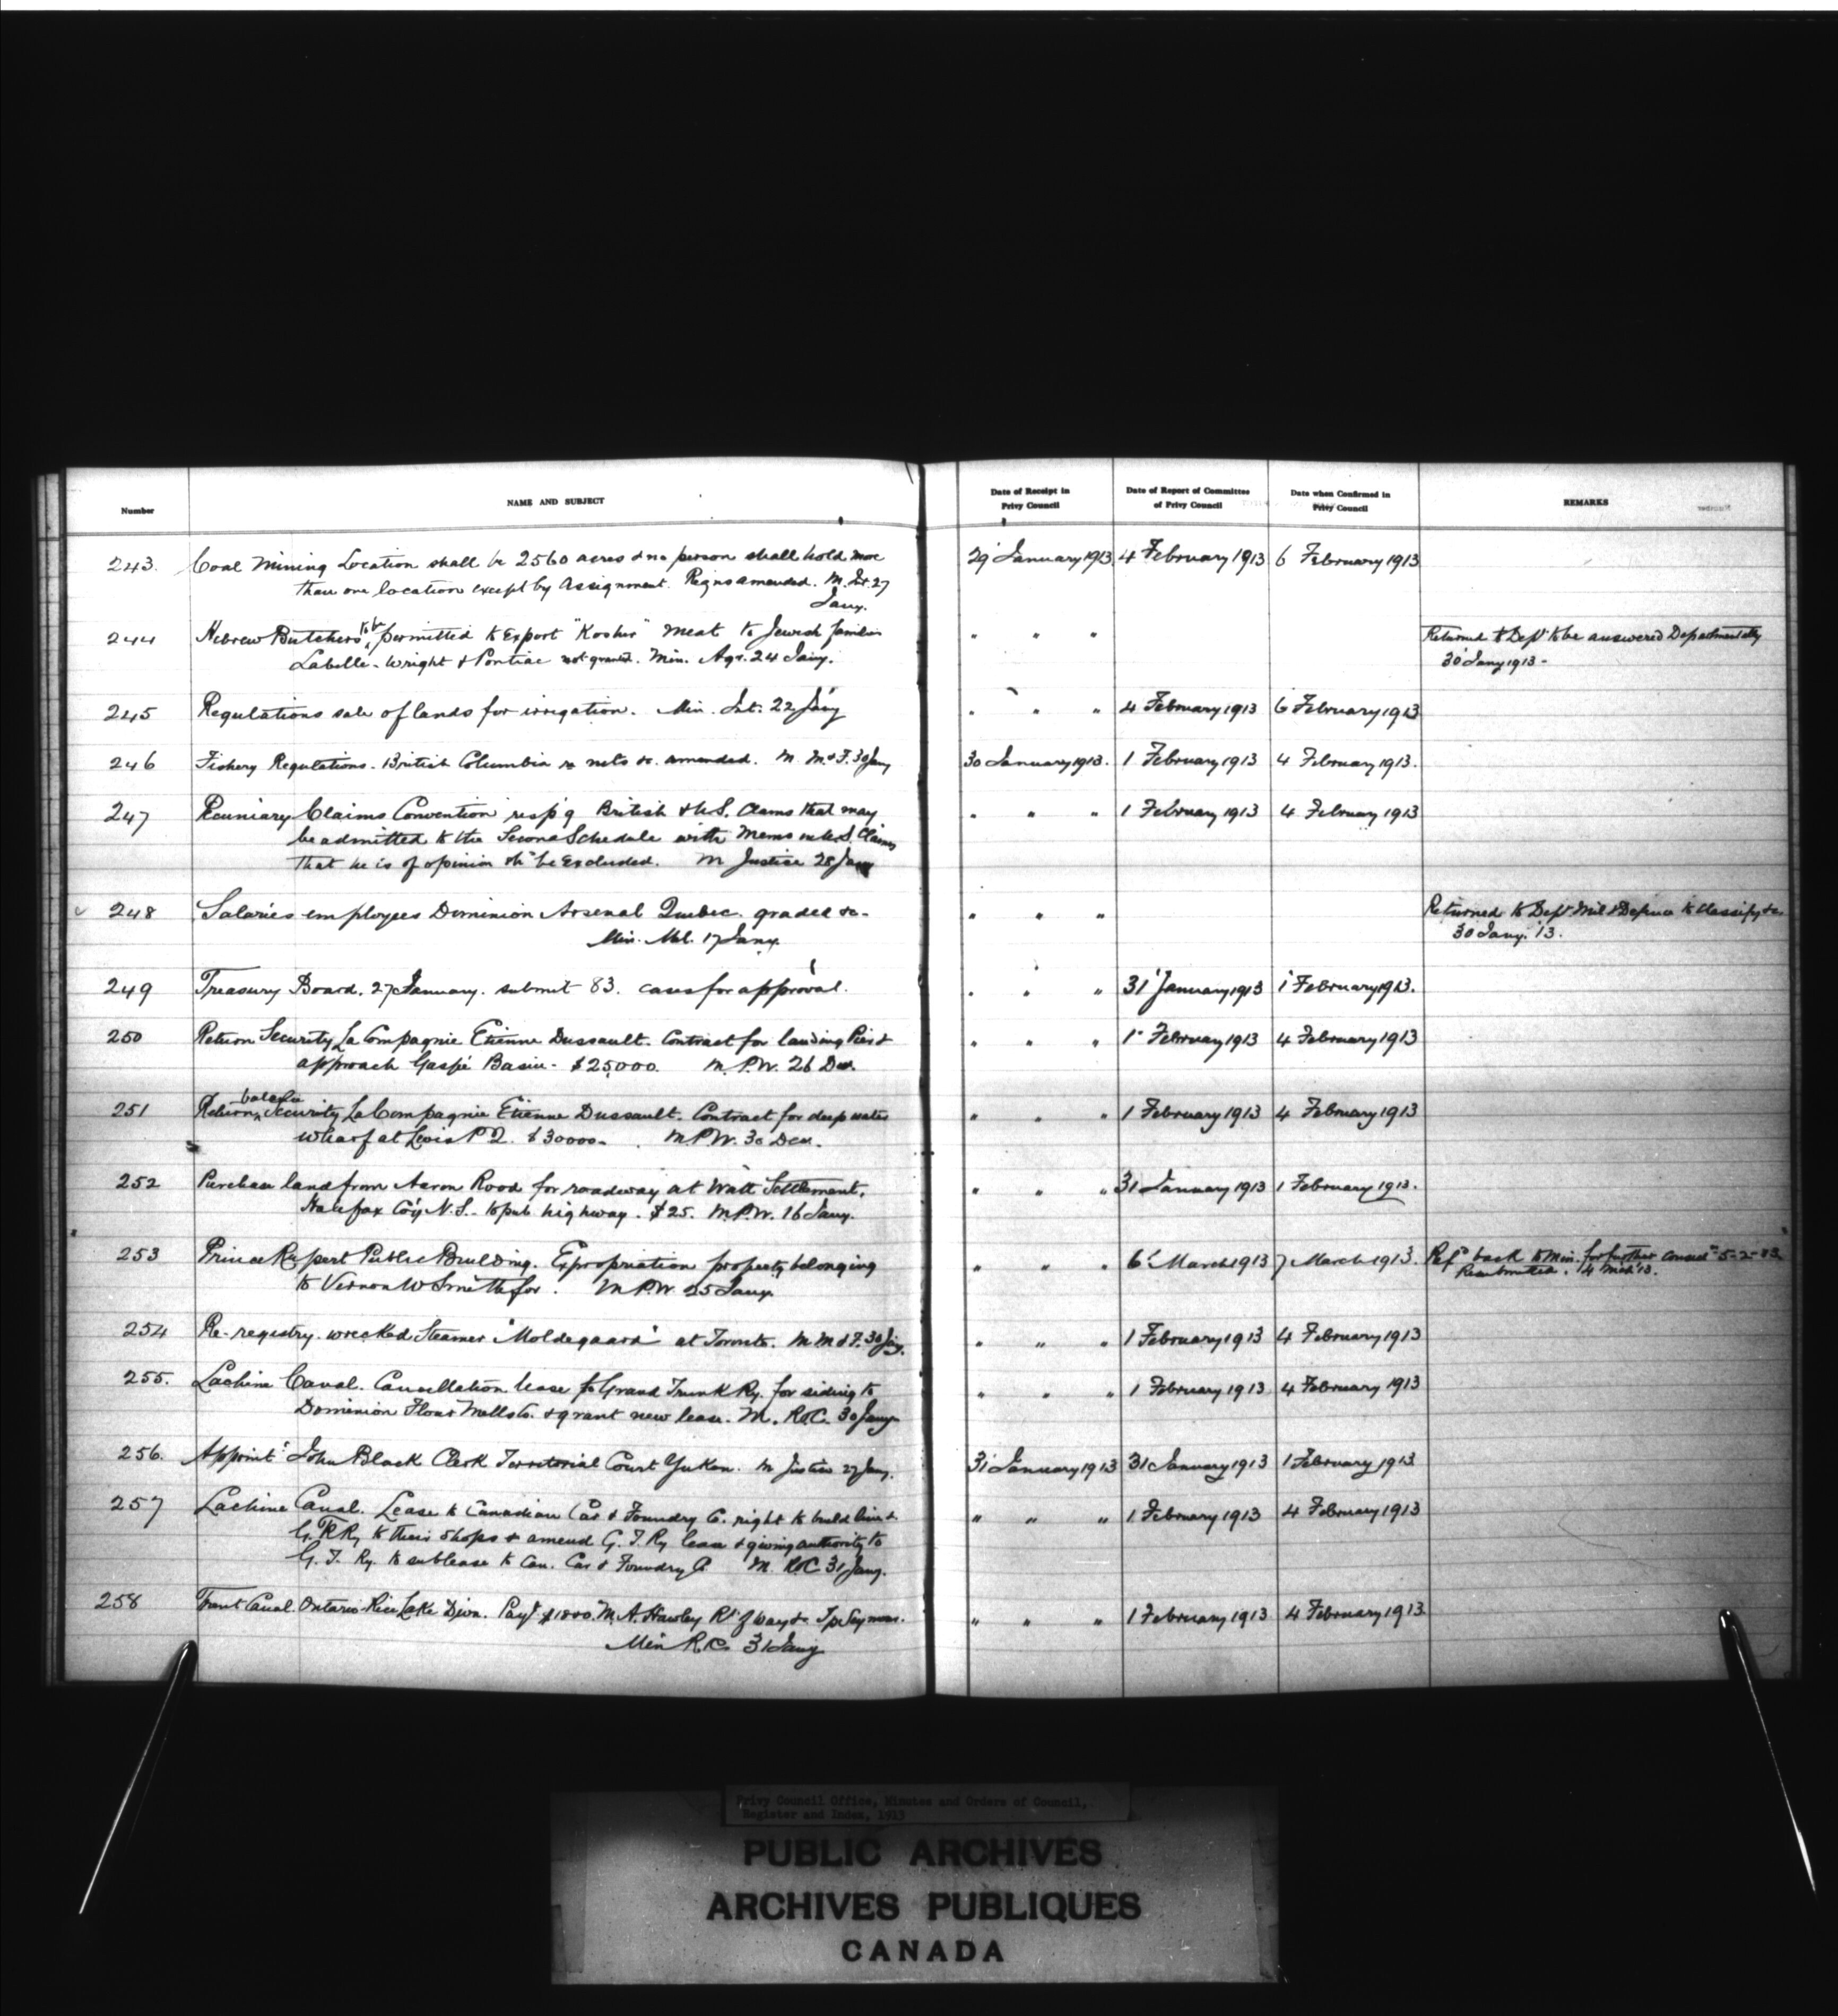 Number NAME AND SUBJECT Date of Receipt in Privy Council Date of Report of Committee of Privy Council Date when Confirmed in Privy Council REMARKS
243. Coal Mining Location shall be 2560 acres & no person shall hold more 29 January 1913 4 February 1913 6 February 1913
than one location except by Assignment. Regns amended. M. Int. 27
Jany.
244 Hebrew Butchers to be permitted to Export "Kosher" Meat to Jewish families " " " Returned to Dept to be answered Departmentally
Labelle - Wright & Pontiac not granted. Min. Agr. 24 Jany. 30 Jany 1913 -
245 Regulations sale of lands for irrigation. Min. Int. 22 Jany " " " 4 February 1913 6 February 1913
246 Fishery Regulations - British Columbia re nets &c. amended. M. M & F. 30 Jany 30 January 1913. 1 February 1913 4 February 1913.
247 Pecuniary Claims Convention resp'g British & U.S. Claims that may " " " 1 February 1913 4 February 1913
be admitted to the Second Schedule with Memo re U.S. Claims
that he is of opinion shd be Excluded. M Justice 28 Jany
248 Salaries employees Dominion Arsenal Quebec. graded &c - " " " Returned to Dept Mil & Defence to Classify &c
Min. Mil. 17 Jany. 30 Jany. '13.
249 Treasury Board. 27 January. submit 83. cases for approval. " " " 31 January 1913 1 February 1913.
250 Return Security La Compagnie Etienne Dussault. Contract for landing Pier & " " " 1 February 1913 4 February 1913
approach Gaspé Basin - $25,000. M. P. W. 26 Dec.
251 Return balance Security La Compagnie Etienne Dussault. Contract for deep water " " 1 February 1913 4 February 1913
wharf at Levis P Q. $30000 - M. P. W. 30 Dec.
252 Purchase land from Aaron Rood for roadway at Watt Settlement, " " " 31 January 1913 1 February 1913.
Halifax Co'y N.S. - to pub highway. $25. M. P. W. 16 Jany.
253 Prince Rupert Public Building. Expropriation property belonging " " " 6 March 1913 7 March 1913. Refd back to Min. for further consdn 5-2-13
to Vernon W Smith for. M. P. W. 25 Jany. Resubmitted. 4 Mch '13.
254 Re-registry wrecked Steamer "Moldegaard" at Toronto. M. M & F. 30 Jany. " " " 1 February 1913 4 February 1913
255. Lachine Canal. Cancellation lease to Grand Trunk Ry. for siding to " " " 1 February 1913 4 February 1913
Dominion Flour Mills Co. & grant new lease. M. R & C. 30 Jany
256. Appoint: John Black Clerk Territorial Court Yukon. M Justice 27 Jany. 31 January 1913 31 January 1913 1 February 1913
257 Lachine Canal. Lease to Canadian Car & Foundry Co. right to build line & " " " 1 February 1913 4 February 1913
G. T. R Ry to their Shops & amend G. T. Ry lease & giving authority to
G. T. Ry. to sublease to Can. Car & Foundry Co M. R & C 31 Jany.
258 Trent Canal. Ontario Rice Lake Divn. Payt $1800. M. A. Hawley Rt of way &c Tp Seymour. " " " 1 February 1913 4 February 1913
Min R. C. 31 Jany
Privy Council Office, Minutes and Orders of Council,
Register and Index, 1913
PUBLIC ARCHIVES
ARCHIVES PUBLIQUES
CANADA